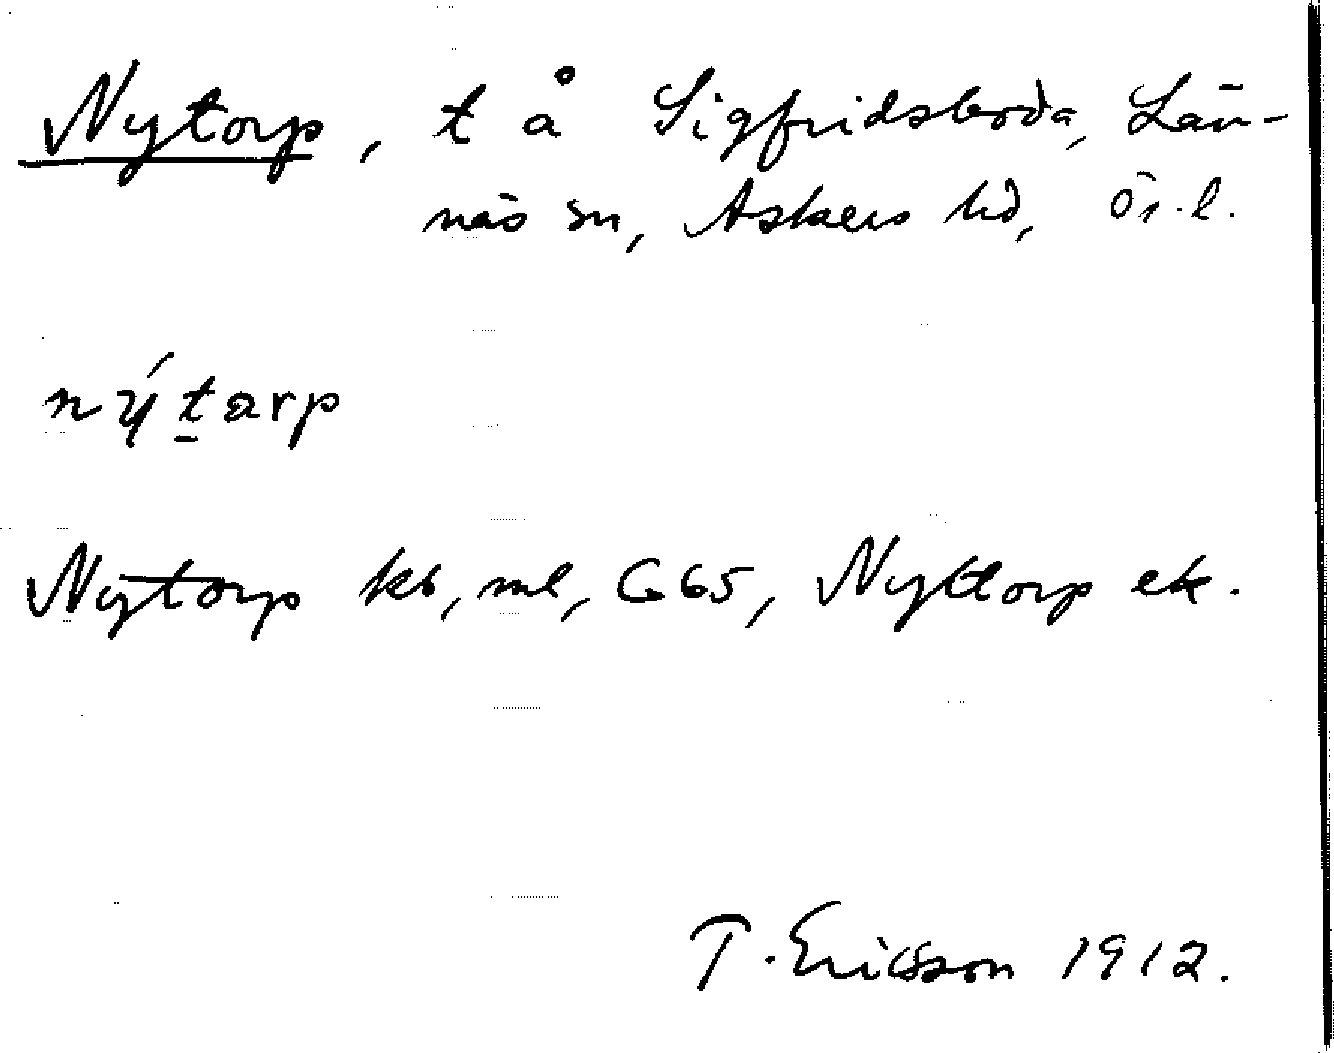 Nytorp, t å Sigfridsboda, Län-
näs sn, Askers hd, Ör. l.
nýtarp
Nytorp kb, ml, G65, Nyttorp ek.
T. Ericsson 1912.